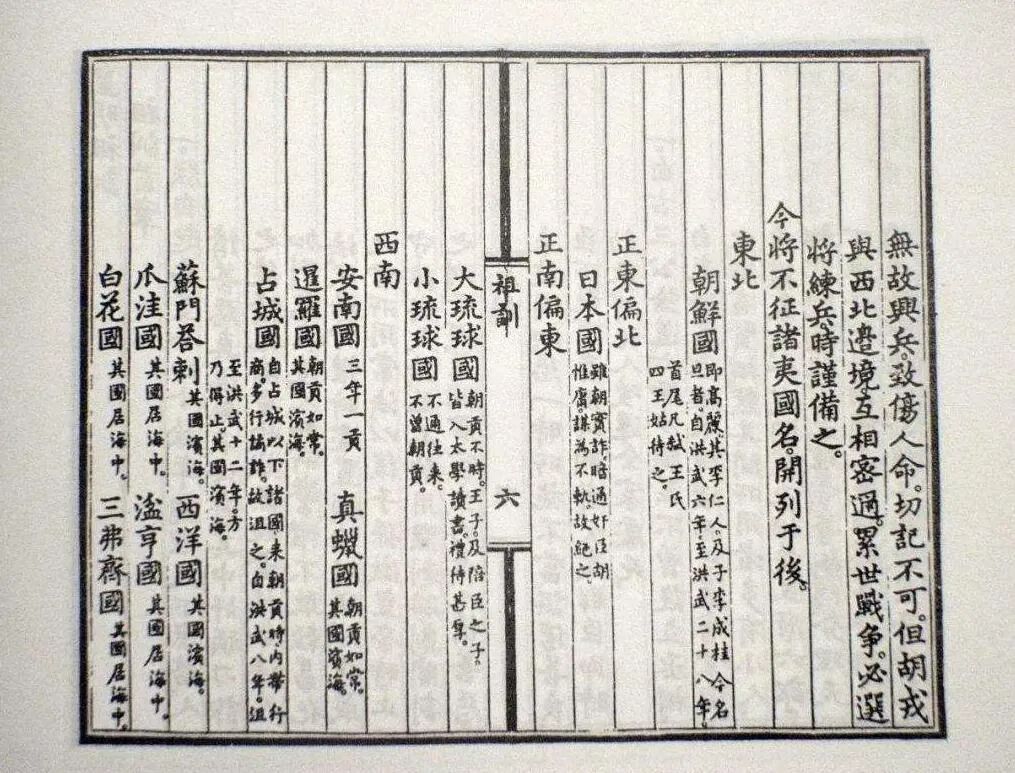 無故興兵。致傷人命。切記不可。但胡戎
與西北邊境互相密邇。累世戰爭。必選
將練兵時謹備之。
今將不征諸夷國名。開列于後。
東北
朝鮮國 即高麗。其李仁人。及子李成桂今名
旦者。自洪武六年。至洪武二十八年。
首尾凡弒王氏
四王姑待之。
正東偏北
日本國 雖朝實詐暗通奸臣胡
惟庸。謀為不軌。故絕之
正南偏東
大琉球國 朝貢不時。王子。及陪臣之子。
皆入太學讀書。禮待甚厚。
小琉球國 不通往來。
不曾朝貢。
西南
安南國 三年一貢 真蠟國 朝貢如常。
其國濱海。
暹羅國 朝貢如常。
其國濱海。
占城國 自占城以下諸國。來朝貢時。內帶行
商。多行譎詐。故沮之。自洪武八年。沮
至洪武十二年。方
乃得止。其國濱海。
蘇門荅剌 其國濱海。 西洋國 其國濱海。
爪洼國 其國居海中。 湓亨國 其國居海中。
白花國 其國居海中。 三弗齊國 其國居海中。
祖訓
六